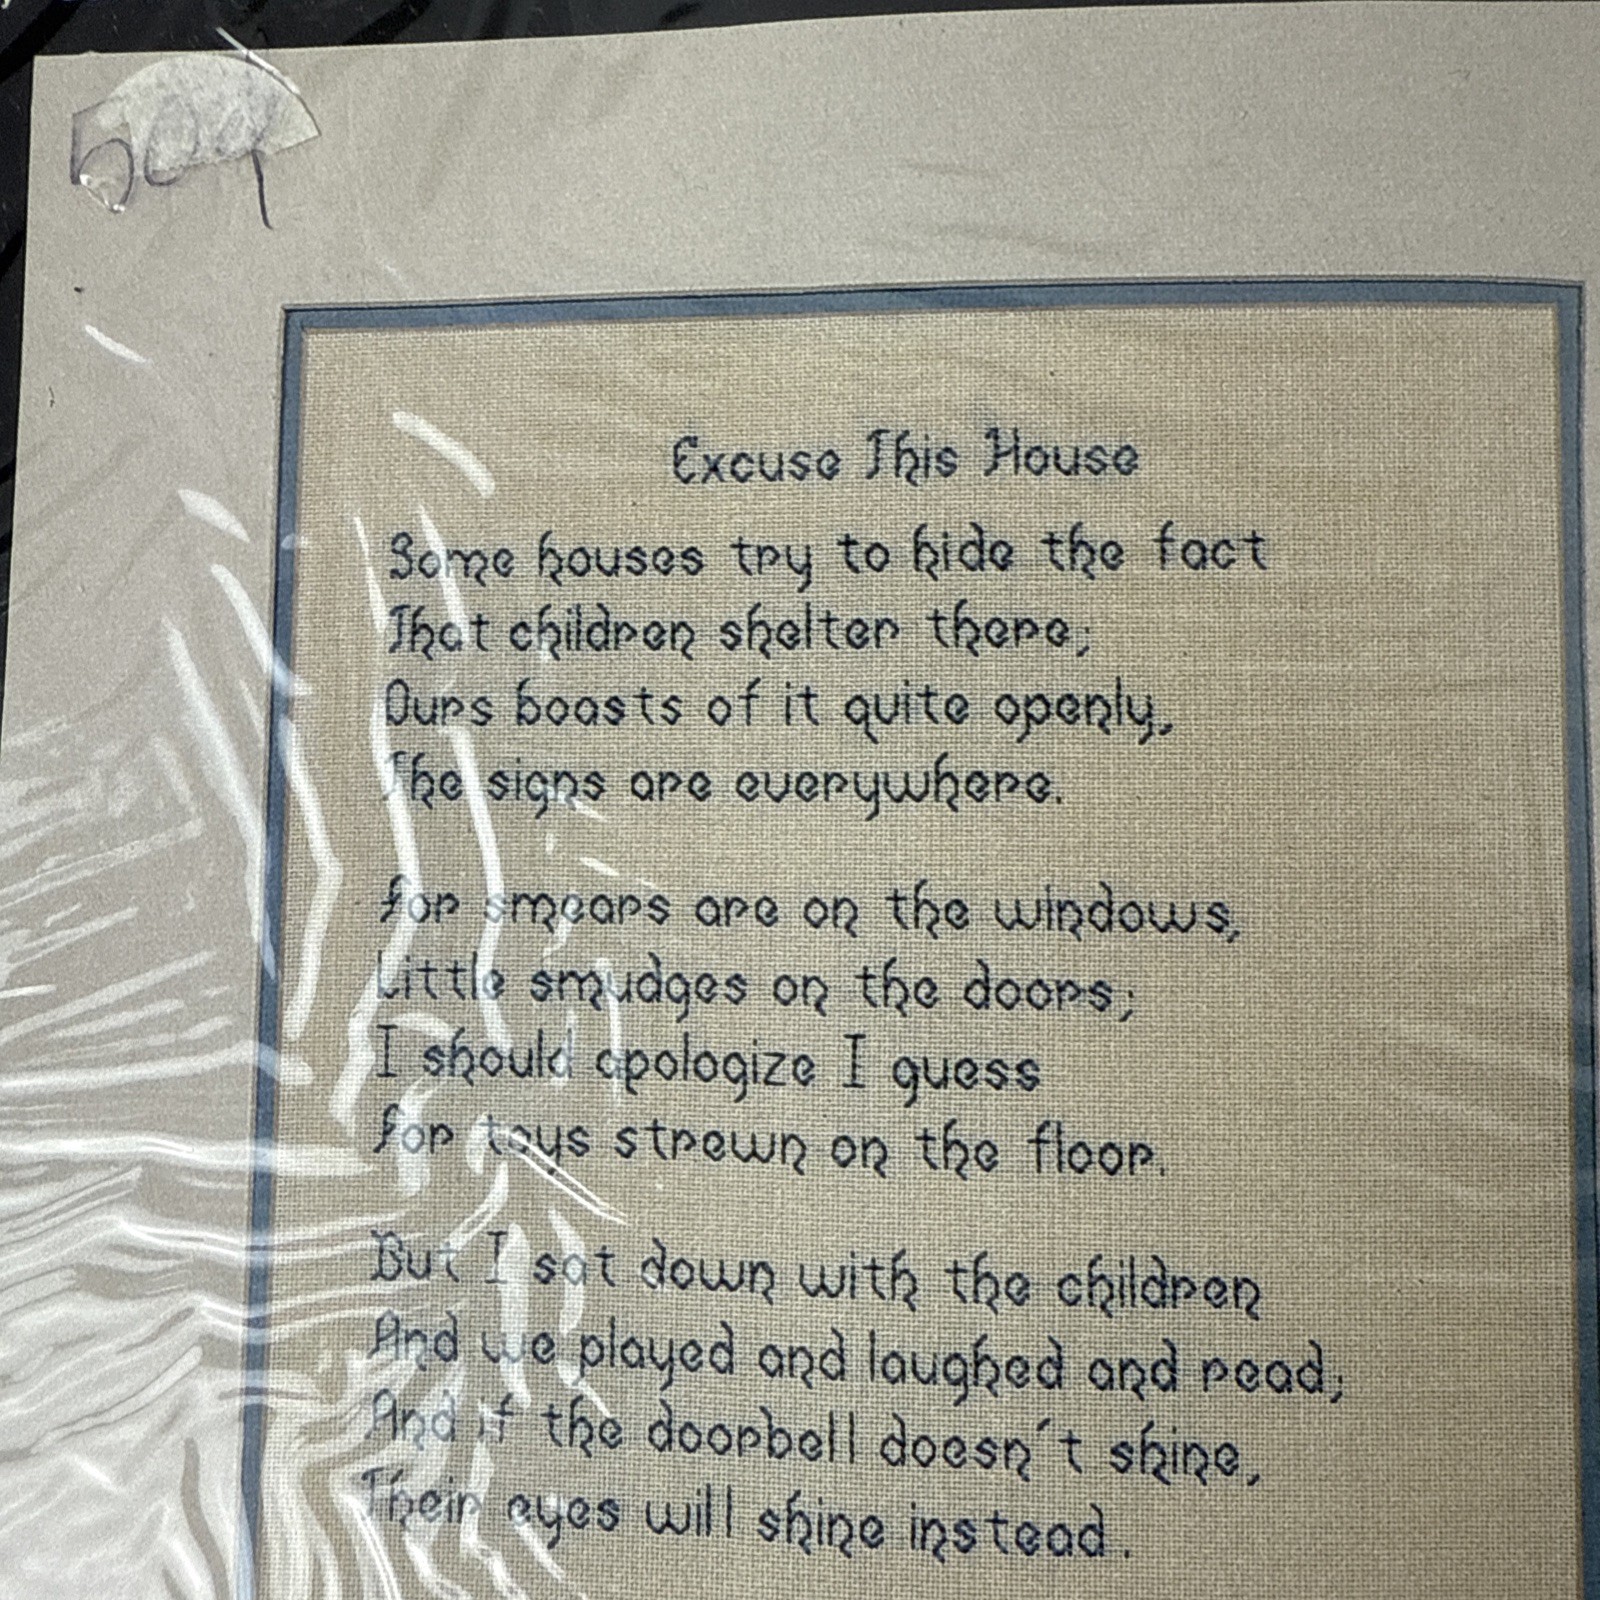 50¢
Excuse This House
Some houses try to hide the fact
That children shelter there;
Ours boasts of it quite openly,
The signs are everywhere.
For smears are on the windows,
Little smudges on the doors;
I should apologize I guess
For toys strewn on the floor.
But I sat down with the children
And we played and laughed and read;
And if the doorbell doesn't shine,
Their eyes will shine instead.